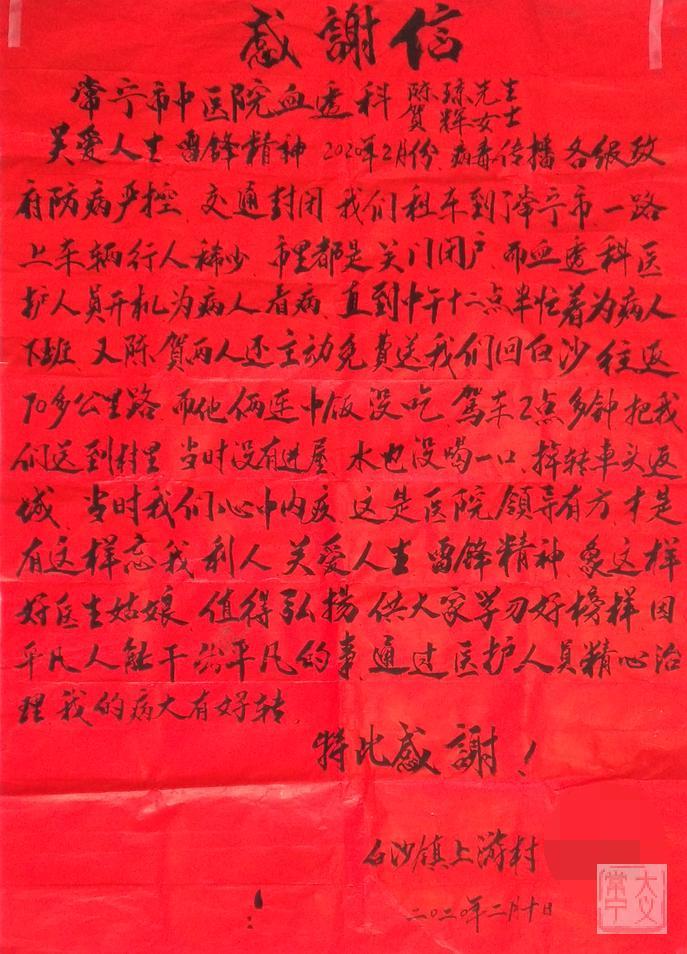 感謝信
常宁市中医院血透科 陈琼先生
賀辉女士
关爱人生 雷锋精神 2020年2月份、病毒传播 各级政
府防病严控、交通封闭 我们租车到常宁市、一路
上车辆行人稀少、市里都是关门闭户、而血透科医
护人员开机为病人看病、直到中午十二点半忙着为病人
下班、又陈賀两人还主动免費送我们回白沙往返
70多公里路 而他俩连中饭没吃、驾车2点多钟把我
们送到村里 当时没有进屋 水也没喝一口、转車头返
城、当时我们心中内疚、这是医院领导有方、才是
有这样忘我利人 关爱人生 雷锋精神、象这样
好医生姑娘、值得弘揚 供大家学习好榜样因
平凡人能干出平凡的事、通过医护人员精心治
理 我的病大有好转、
特此感謝！
白沙镇上游村
二〇二〇年二月十日
大义
常宁